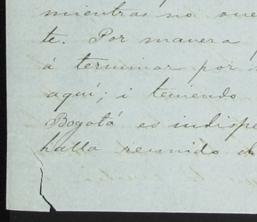 mientras no
te. Por manera
á terminar por
aquí; i teniendo
Bogotá es indispe
halla reunido